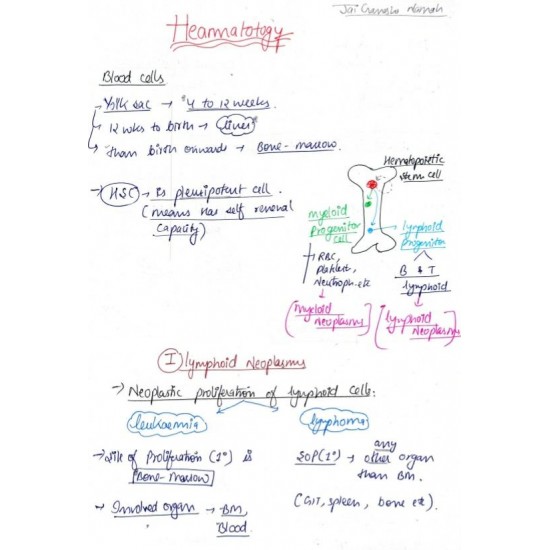 Jai Ganesha Namah
Heammatology
Blood cells
→ Yolk sac → "4 to 12 weeks.
→ 12 wks to birth → "liver"
→ than birth onwards → Bone-marrow.
→ HSC → is pleuripotent cell.
(means has self renewal
capacity)
Hematopoietic
stem cell
myeloid
progenitor
cell
→ RBC,
platelets,
Neutroph. etc
[myeloid
Neoplasms]
lymphoid
progenitor
B & T
lymphoid
[lymphoid
Neoplasms]
I lymphoid Neoplasms
→ Neoplastic proliferation of lymphoid cells:
leukaemia
→ site of proliferation (1°) is
Bone-marrow
→ Involved organ → BM,
Blood.
lymphoma
SOP (1°) → any
other organ
than BM.
(GIT, spleen, bone etc).